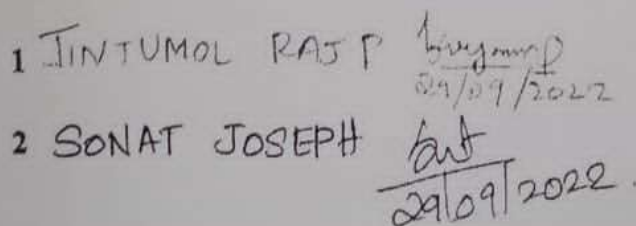 1 JINTUMOL RAJ P
29/09/2022
2 SONAT JOSEPH
29/09/2022